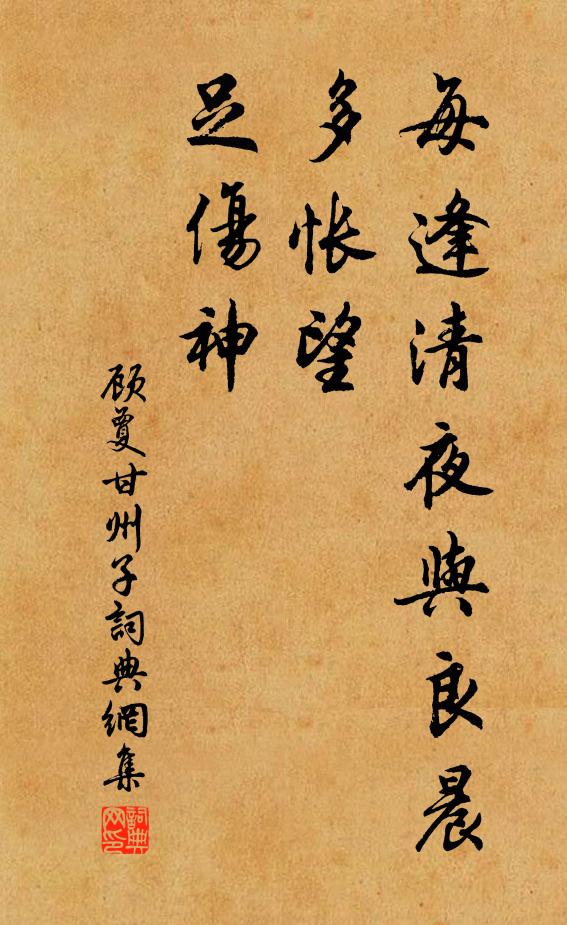 每逢清夜與良晨
多怅望
足傷神
顾夐甘州子詞典網集
詞典网印